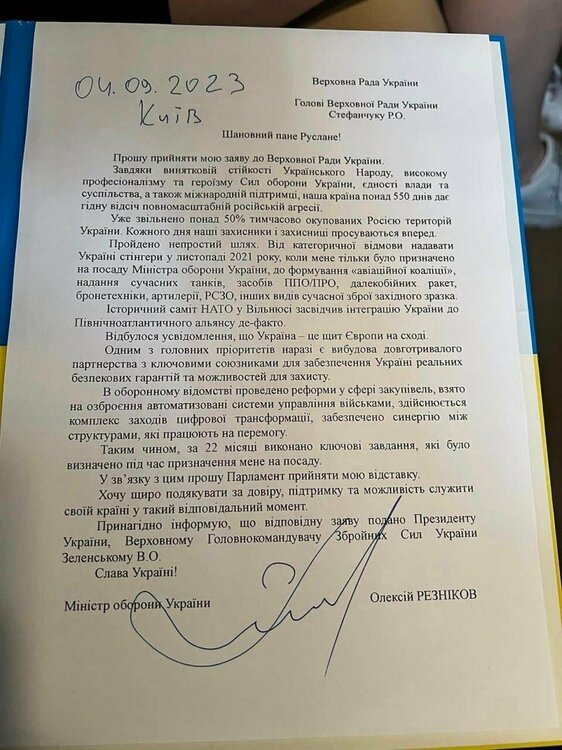 04.09.2023
Київ
Верховна Рада України
Голові Верховної Ради України
Стефанчуку Р.О.
Шановний пане Руслане!
Прошу прийняти мою заяву до Верховної Ради України.
Завдяки винятковій стійкості Українського Народу, високому
професіоналізму та героїзму Сил оборони України, єдності влади та
суспільства, а також міжнародній підтримці, наша країна понад 550 днів дає
гідну відсіч повномасштабній російській агресії.
Уже звільнено понад 50% тимчасово окупованих Росією територій
України. Кожного дня наші захисники і захисниці просуваються вперед.
Пройдено непростий шлях. Від категоричної відмови надавати
Україні стінгери у листопаді 2021 року, коли мене тільки було призначено
на посаду Міністра оборони України, до формування «авіаційної коаліції»,
надання сучасних танків, засобів ППО/ПРО, далекобійних ракет,
бронетехніки, артилерії, РСЗО, інших видів сучасної зброї західного зразка.
Історичний саміт НАТО у Вільнюсі засвідчив інтеграцію України до
Північноатлантичного альянсу де-факто.
Відбулося усвідомлення, що Україна – це щит Європи на сході.
Одним з головних пріоритетів наразі є вибудова довготривалого
партнерства з ключовими союзниками для забезпечення Україні реальних
безпекових гарантій та можливостей для захисту.
В оборонному відомстві проведено реформи у сфері закупівель, взято
на озброєння автоматизовані системи управління військами, здійснюється
комплекс заходів цифрової трансформації, забезпечено синергію між
структурами, які працюють на перемогу.
Таким чином, за 22 місяці виконано ключові завдання, які було
визначено під час призначення мене на посаду.
У зв`язку з цим прошу Парламент прийняти мою відставку.
Хочу щиро подякувати за довіру, підтримку та можливість служити
своїй країні у такий відповідальний момент.
Принагідно інформую, що відповідну заяву подано Президенту
України, Верховному Головнокомандувачу Збройних Сил України
Зеленському В.О.
Слава Україні!
Міністр оборони України Олексій РЕЗНІКОВ